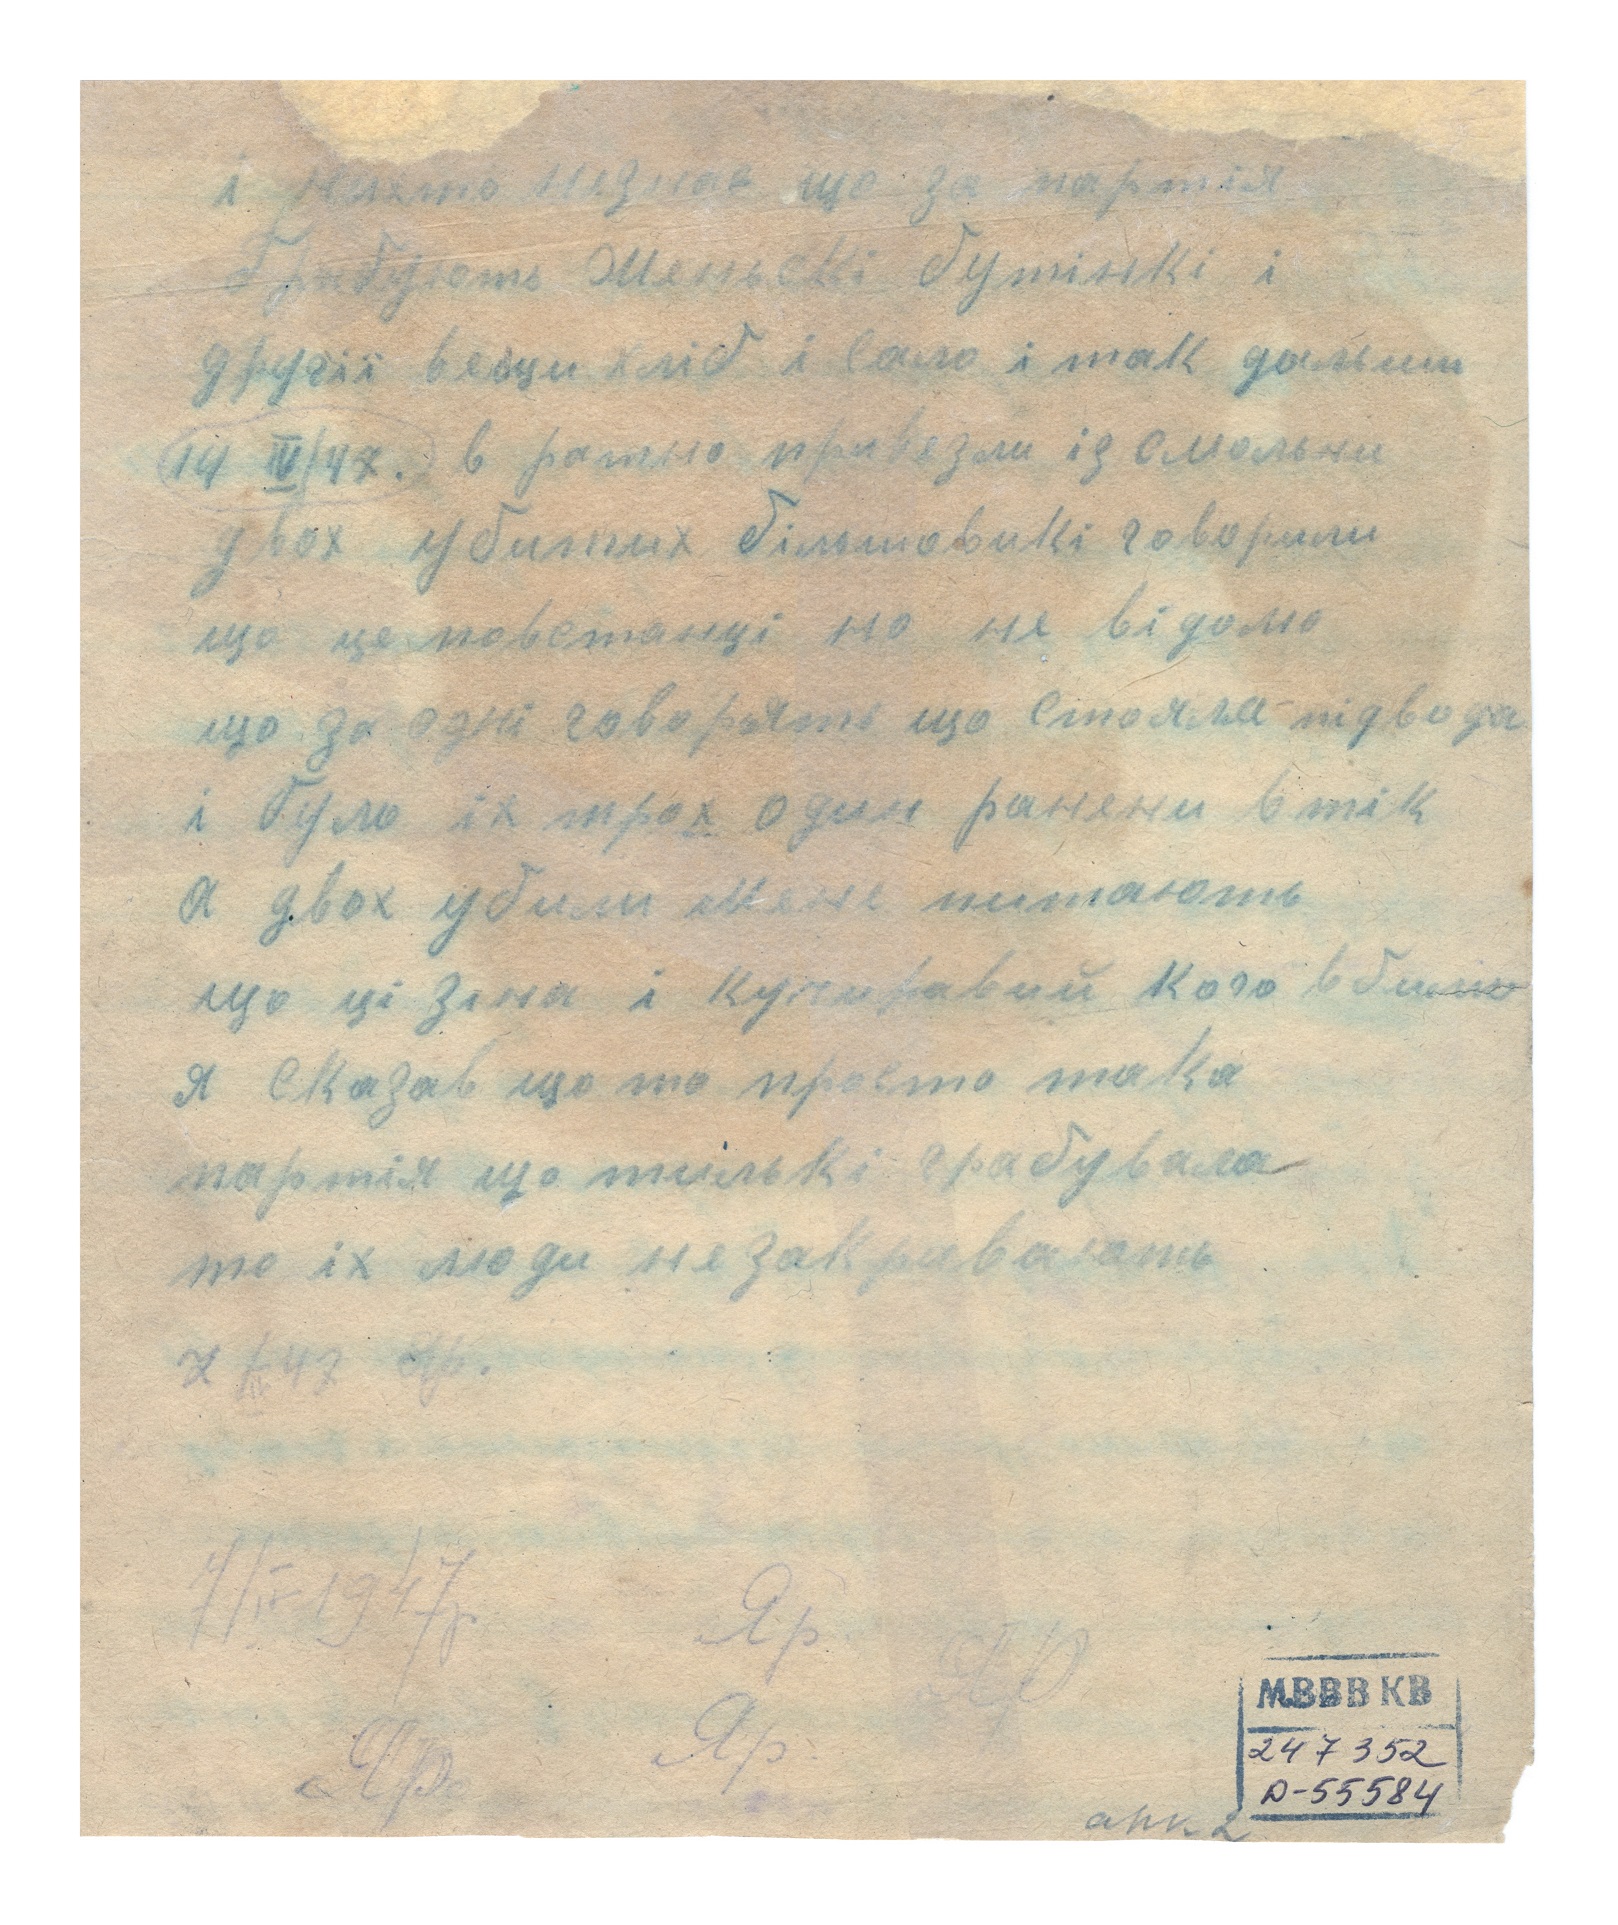 і нихто незнав що за партія
грабують Меньскі бутінкі і
другії вещи хліб і сало і так дальши
14 IV/47. в ратно привезли із смольни
двох убитих більшовикі говорили
що це повстанці но не відомо
що за одні говорять що стояла підвода
і було іх трох один ранени втік
А двох убили мене питають
що ці зіна і кучиравий кого вбили
я сказав що то просто така
партія що тилькі грабувала
то іх люди незакривають
7 IV 47 Яр.
7/IV 1947р Яр
ЯР
Яр. Яр.
МВВВ КВ
247352
Д-55584
арк. 2